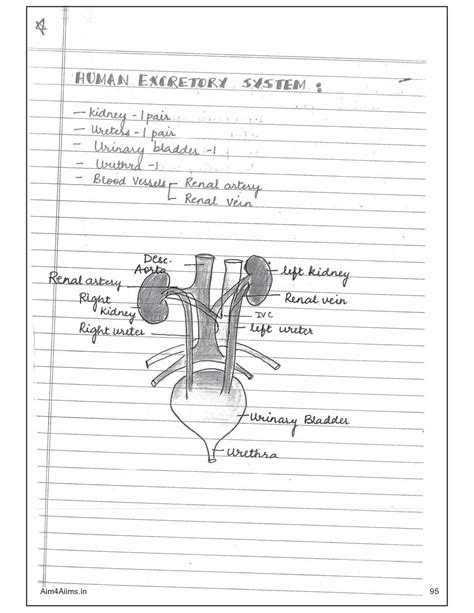 HUMAN EXCRETORY SYSTEM :
— kidney - 1 pair
— Ureters - 1 pair
- Urinary bladder - 1
- Urethra - 1
- Blood Vessels - Renal artery
Renal Vein
Desc.
Aorta
left kidney
Renal artery
Right
kidney
Renal vein
IVC
Right ureter
left ureter
Urinary Bladder
Urethra
Aim4Aiims.in
95